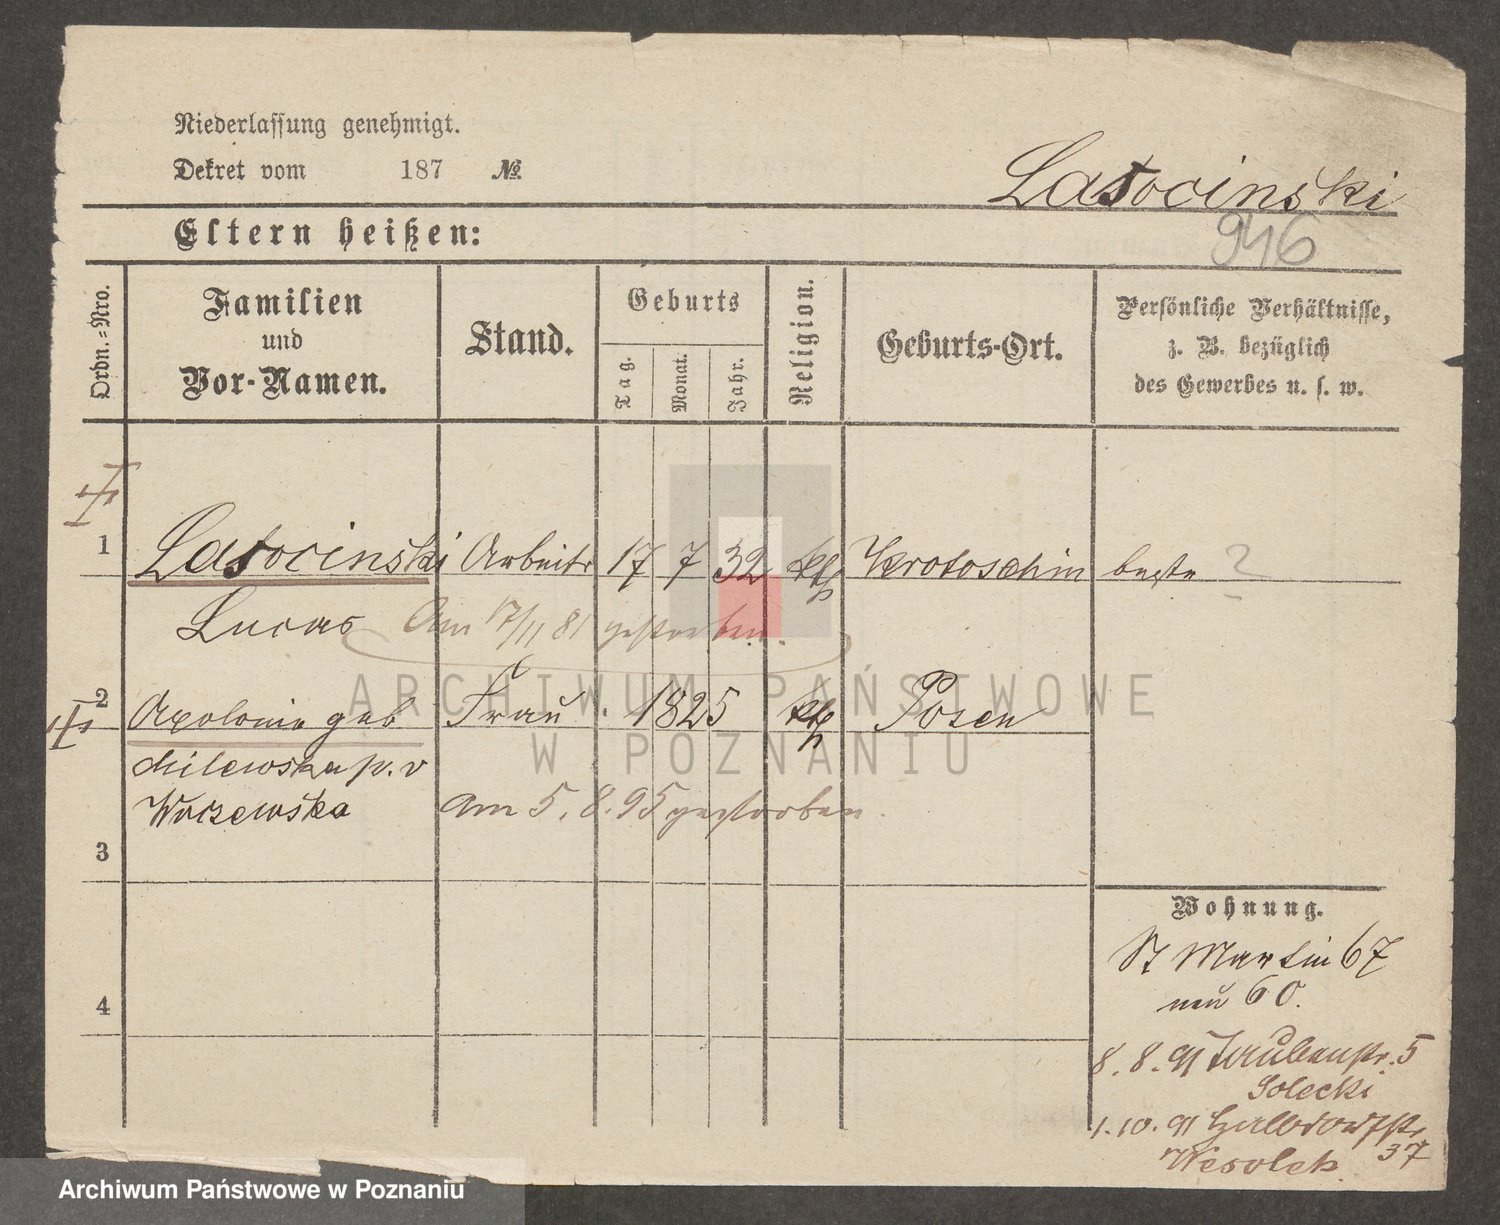 Niederlassung genehmigt.
Dekret vom 187 №
Latocinski
946
Eltern heißen:
Ordn.=Nro.
Familien
und
Vor-Namen.
Stand.
Geburts
Tag.
Monat.
Jahr.
Religion.
Geburts-Ort.
Persönliche Verhältnisse,
z. B. bezüglich
des Gewerbes u. s. w.
1 Latocinski Arbeitr 17 7 32 kth Krotoschin ?
Lucas Am 17/11 81 gestorben.
2 Apolonia geb Frau 1825 kth Posen
Milewska p. v
Worzewska am 5. 8. 95 gestorben.
3
4
Wohnung.
St Martin 67
neu 60.
8. 8. 91 Taubenstr. 5
Solecki
1. 10. 91 Halbdorfstr
37
Wesolek
ARCHIWUM PAŃSTWOWE
W POZNANIU
Archiwum Państwowe w Poznaniu